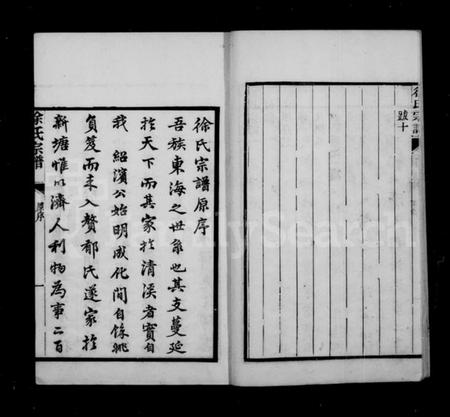 徐氏宗譜
號十
徐氏宗譜原序
吾族東海之世系也其支蔓延
於天下而其家於清溪者實自
我 紹濱公始明成化間自餘姚
負笈而來入贅郁氏遂家於
新塘惟以濟人利物為事二百
徐氏宗譜
原序
一
FamilySearch